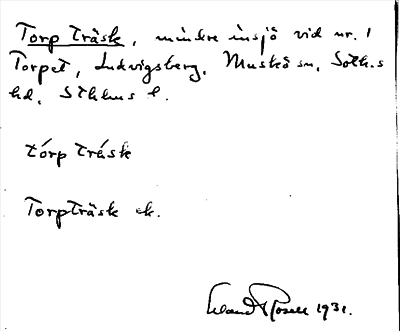 Torp Träsk, mindre insjö vid nr. 1
Torpet, Ludvigsberg, Muskö sn, Soth.s
hd, Sthlms l.
tórp trásk
Torpträsk ek.
Rosell 1931.